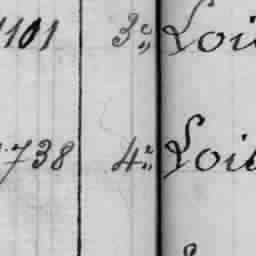 1101 3° „ Loi
738 4° „ Loi